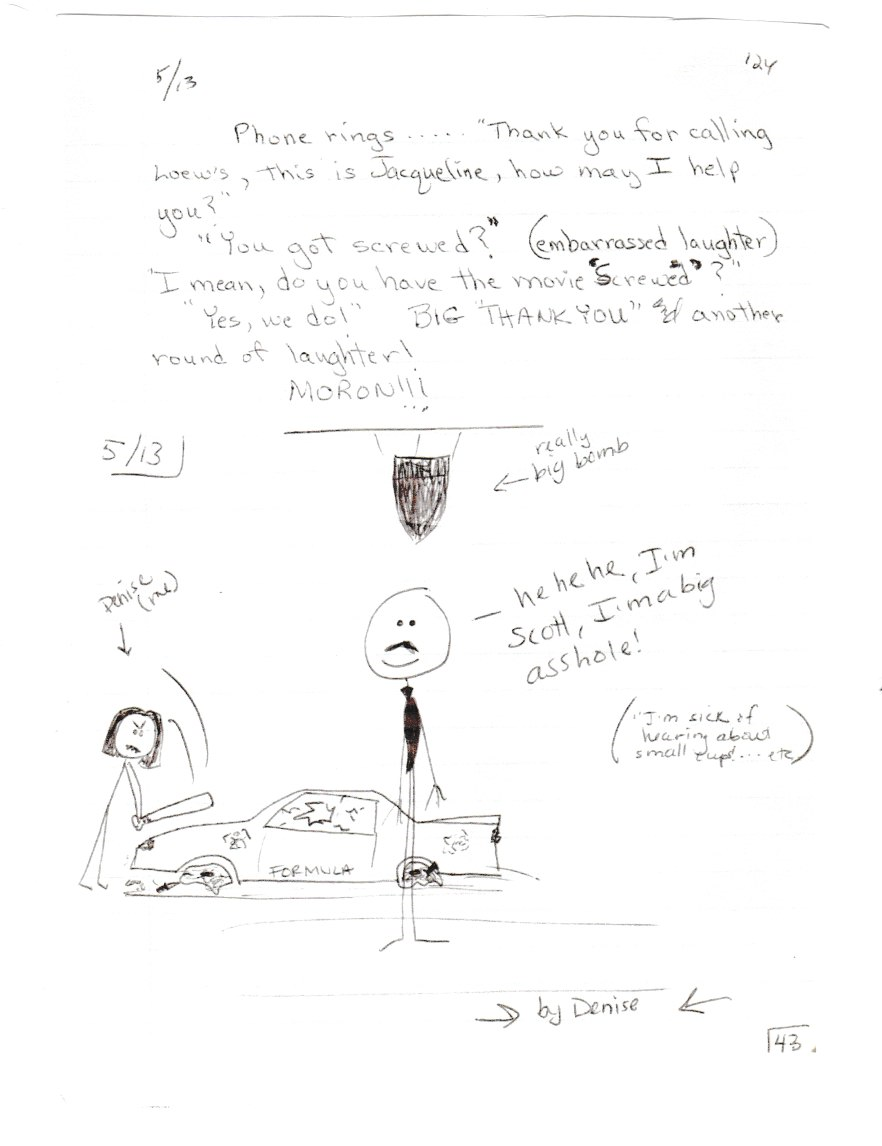 5/13
'24
Phone rings ..... "Thank you for calling
Loew's, this is Jacqueline, how may I help
you?"
"You got screwed?" (embarrassed laughter)
"I mean, do you have the movie "Screwed"?"
"Yes, we do!" BIG "THANK YOU" & another
round of laughter!
MORON!!!
5/13
really
big bomb
Denise
(me)
hehehe, I'm
Scott, I'm a big
asshole!
("I'm sick of
hearing about
small cups!... etc)
FORMULA
by Denise
43